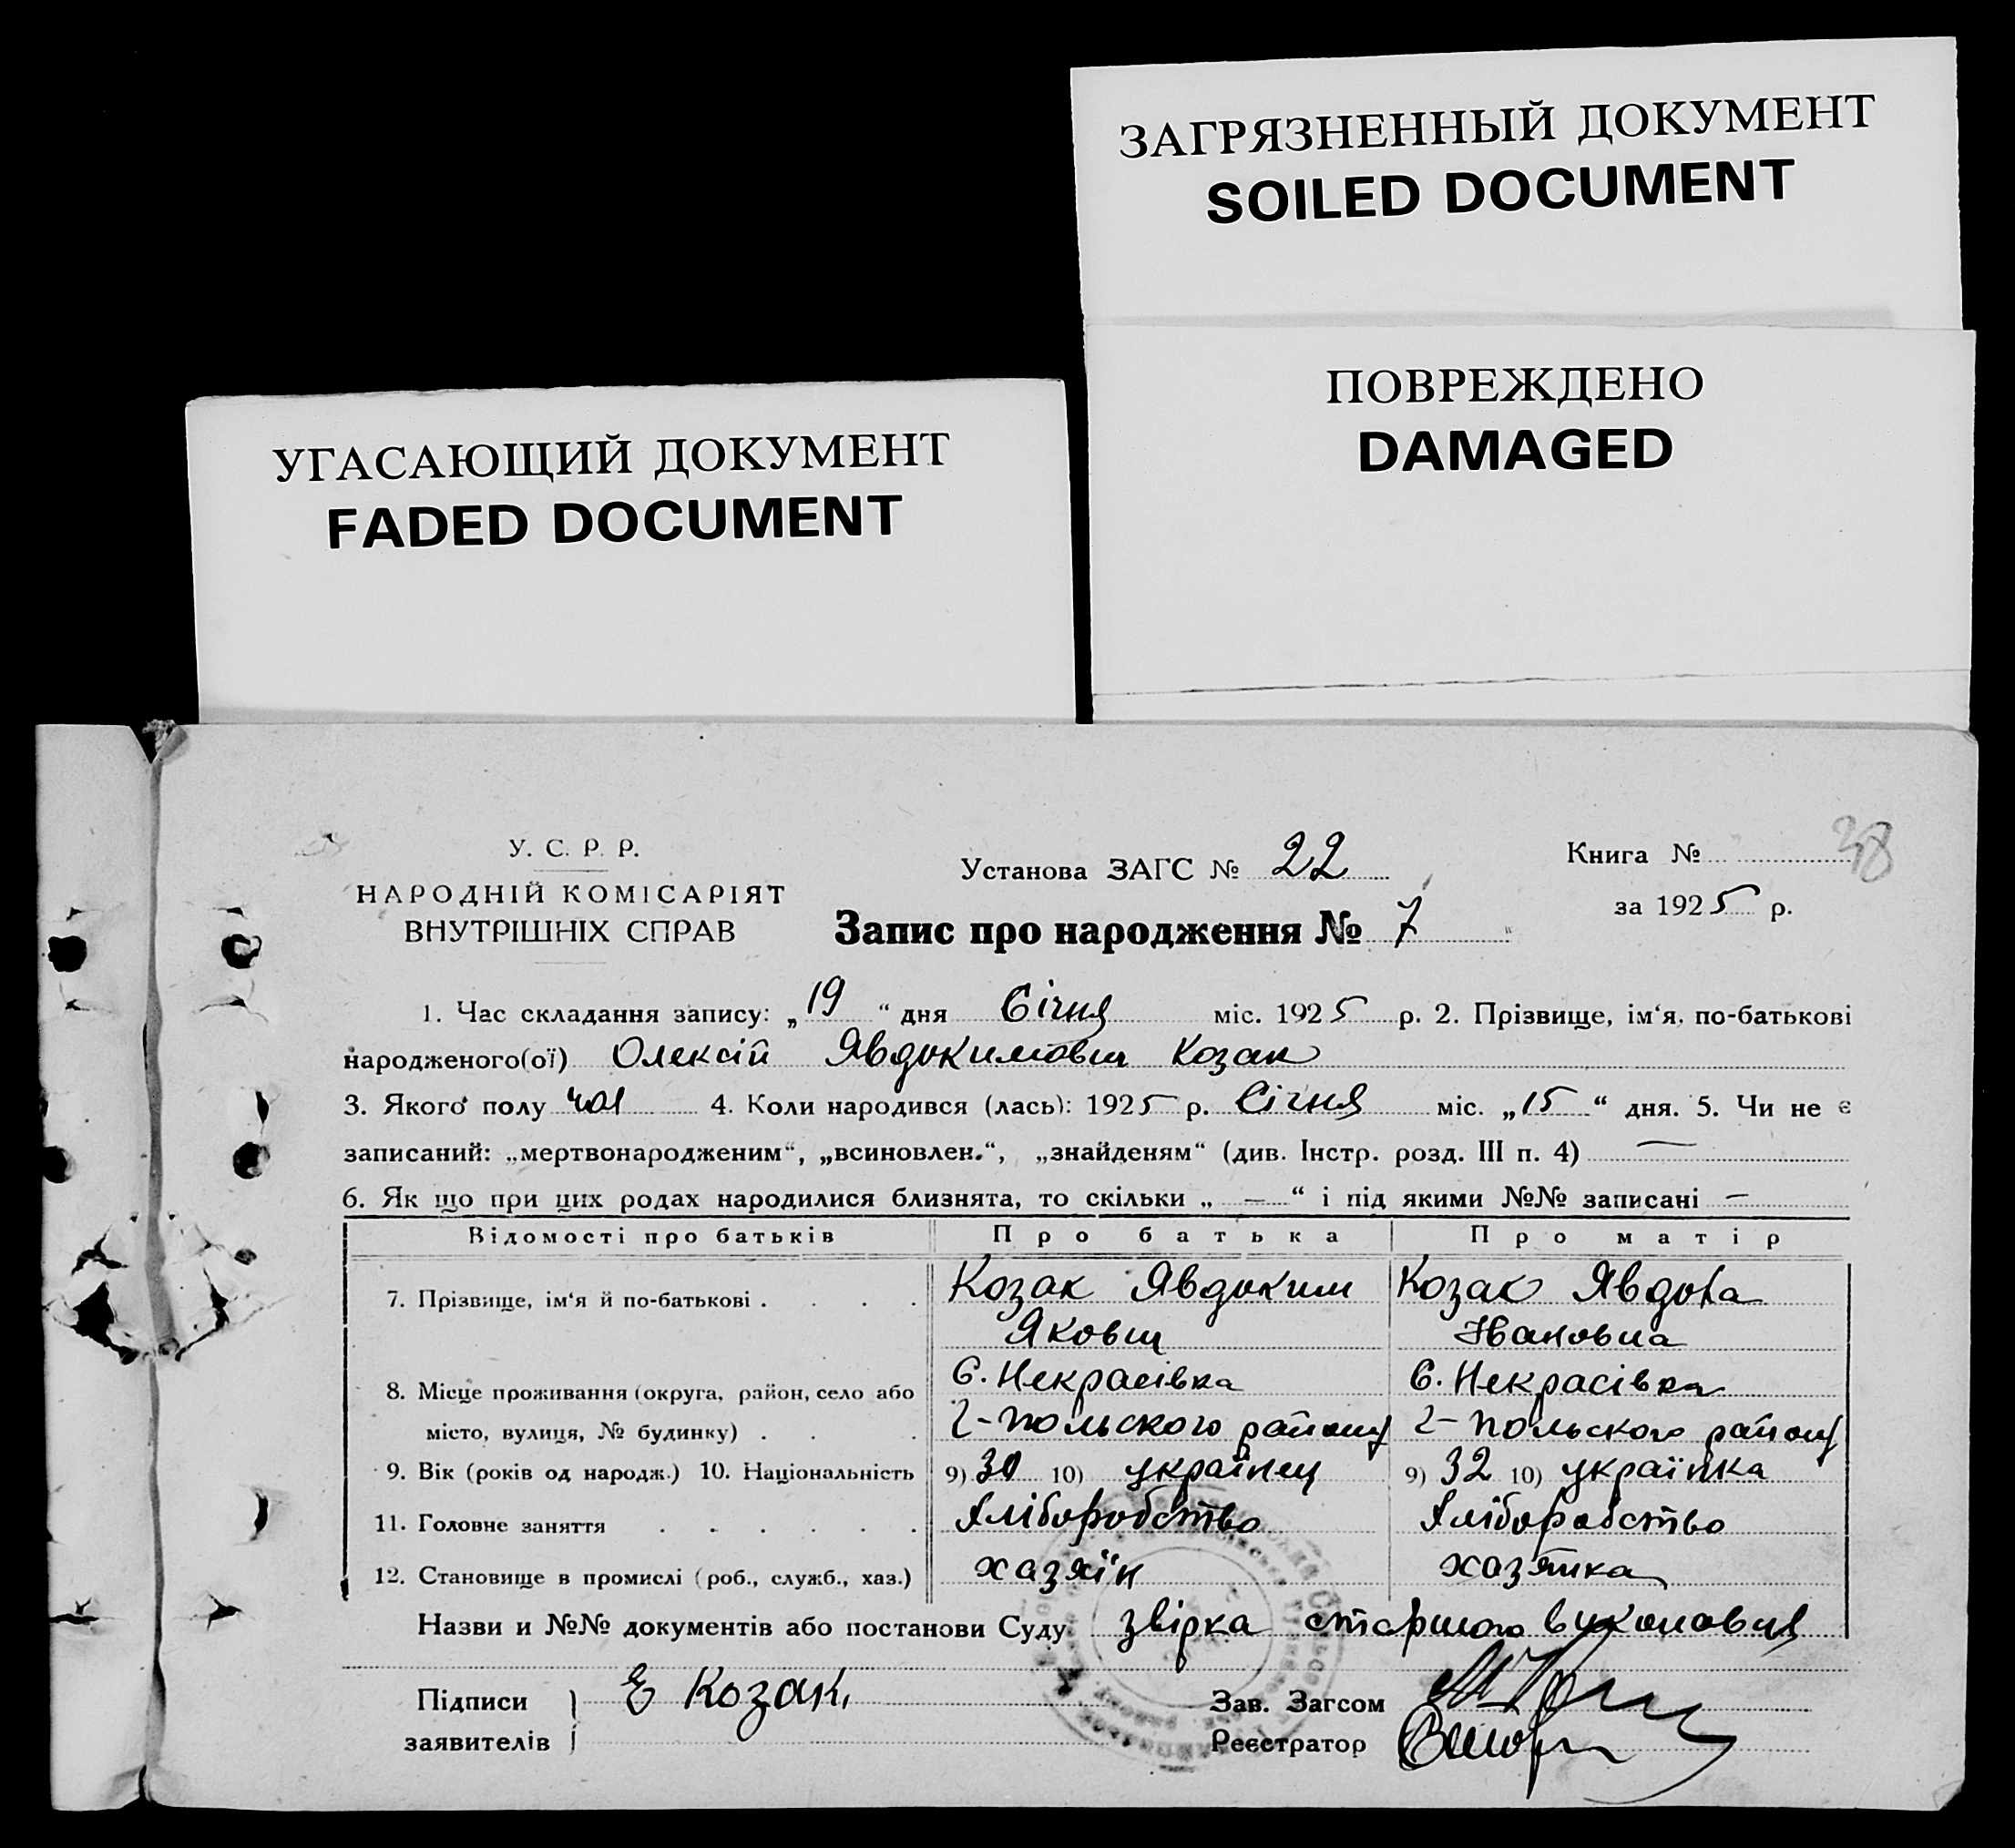 ЗАГРЯЗНЕННЫЙ ДОКУМЕНТ
SOILED DOCUMENT
ПОВРЕЖДЕНО
DAMAGED
УГАСАЮЩИЙ ДОКУМЕНТ
FADED DOCUMENT
У. С. Р. Р.
НАРОДНІЙ КОМІСАРІЯТ
ВНУТРІШНІХ СПРАВ
Установа ЗАГС № 22
Запис про народження № 7
Книга № 38
за 1925 р.
1. Час складання запису: „19“ дня Січня міс. 1925 р. 2. Прізвище, ім‘я, по-батькові
народженого(ої) Олексій Явдокимович Козак
3. Якого полу чол 4. Коли народився (лась): 1925 р. Січня міс. „15“ дня. 5. Чи не є
записаний: „мертвонародженим“, „всиновлен.“, „знайденям“ (див. Інстр. розд. III п. 4) —
6. Як що при цих родах народилися близнята, то скільки „ — “ і під якими №№ записані —
Відомості про батьків Про батька Про матір
7. Прізвище, ім‘я й по-батькові . . . . Козак Явдоким Козак Явдоха
Якович Івановна
8. Місце проживання (округа, район, село або С. Некрасівка С. Некрасівка
місто, вулиця, № будинку) . . . Г-польского району Г-польского району
9. Вік (років од народж.) 10. Національність 9) 30 10) українец 9) 32 10) українка
11. Головне заняття . . . . . . Хліборобство Хліборобство
12. Становище в промислі (роб., служб., хаз.) хазяїн хазяйка
Назви и №№ документів або постанови Суду звірка старшого виконовця
Підписи Е Козак Зав. Загсом
заявителів Реєстратор